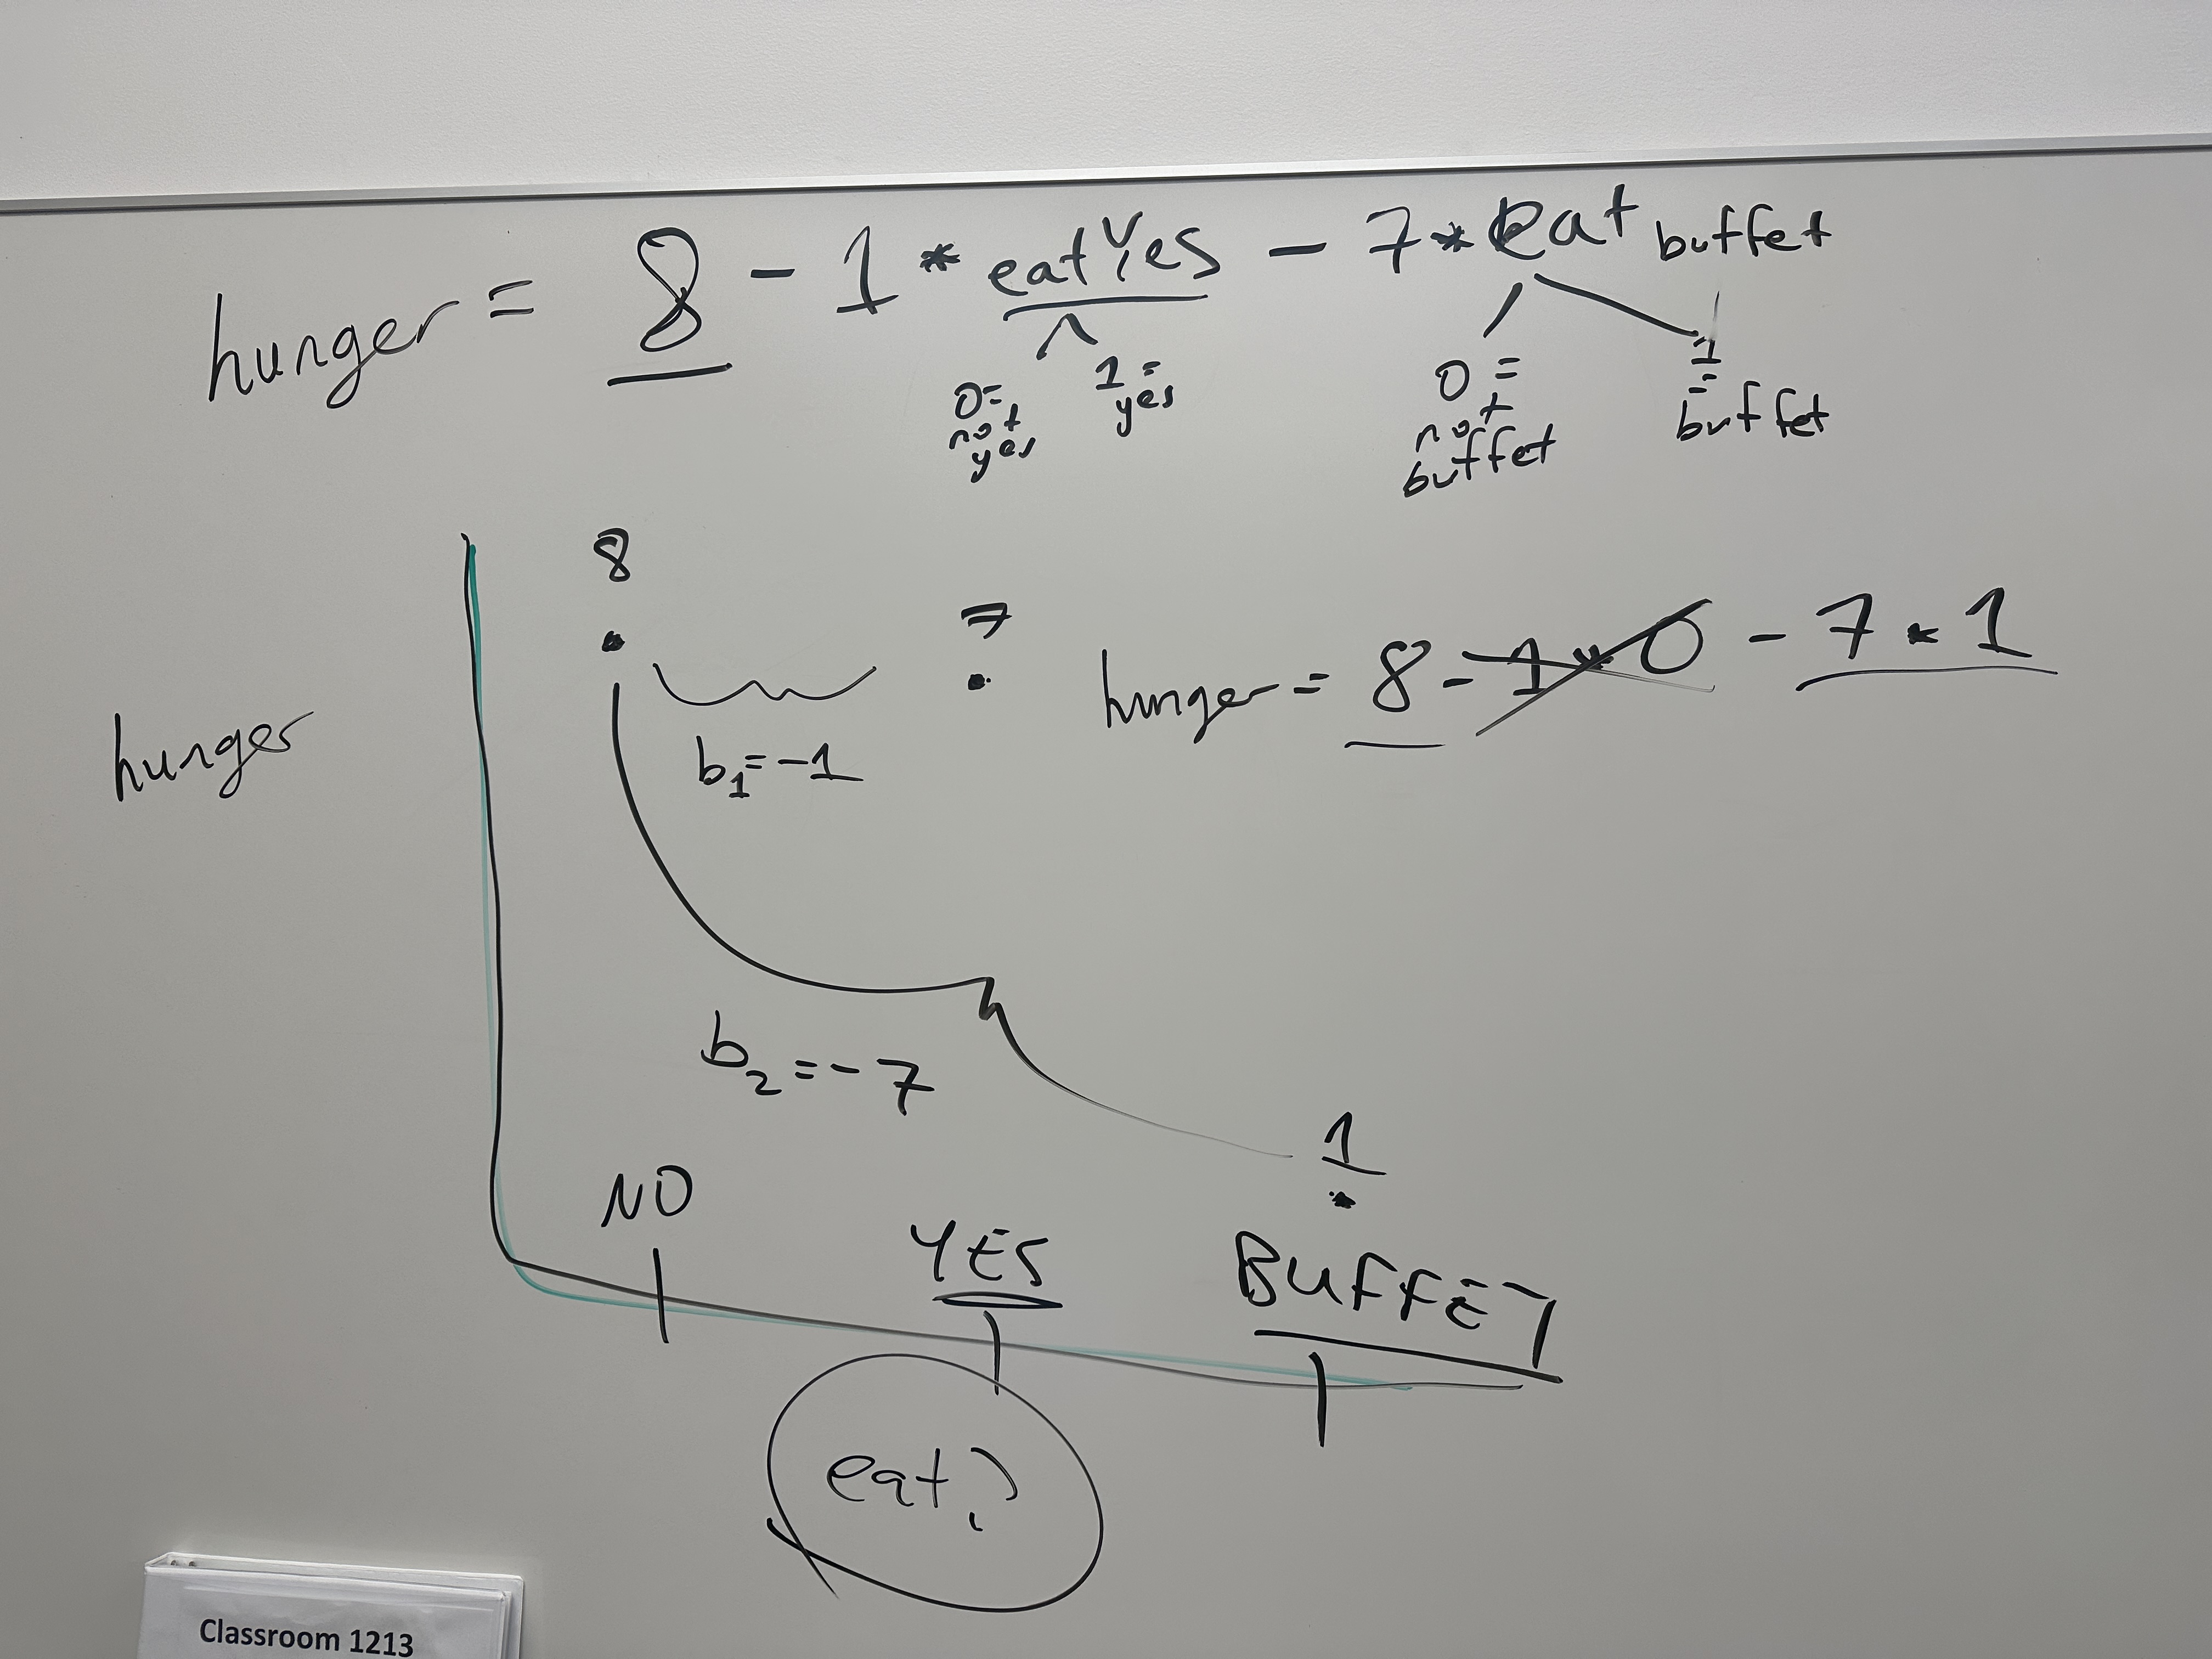 hunger = 8 - 1 * eatYes - 7 * eat buffet
0 = not yes
1 = yes
0 = not buffet
1 = buffet
8
7
hunger = 8 - 1 * 0 - 7 * 1
hunger
b1 = -1
b2 = -7
1
NO
YES
BUFFET
eat?
Classroom 1213